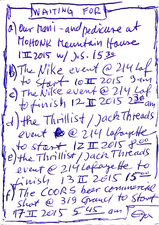 WAITING FOR
a) our mani- and pedicure at
MOHONK Mountain House
1 II 2015 w/ J.S. 15 30
b) the Nike event @ 214 Laf
to start 10 II 2015 9 am
c) the Nike event @ 214 Laf
to finish 12 II 2015 2 30 am
d) the Thrillist / Jack Threads
event @ 214 Lafayette
to start 12 II 2015 8 00
e) the Thrillist / Jack Threads
event @ 214 Lafayette to
finish 13 II 2015 15 00
f) the COORS beer commercial
shot @ 319 Grand to start
17 II 2015 5 45 am